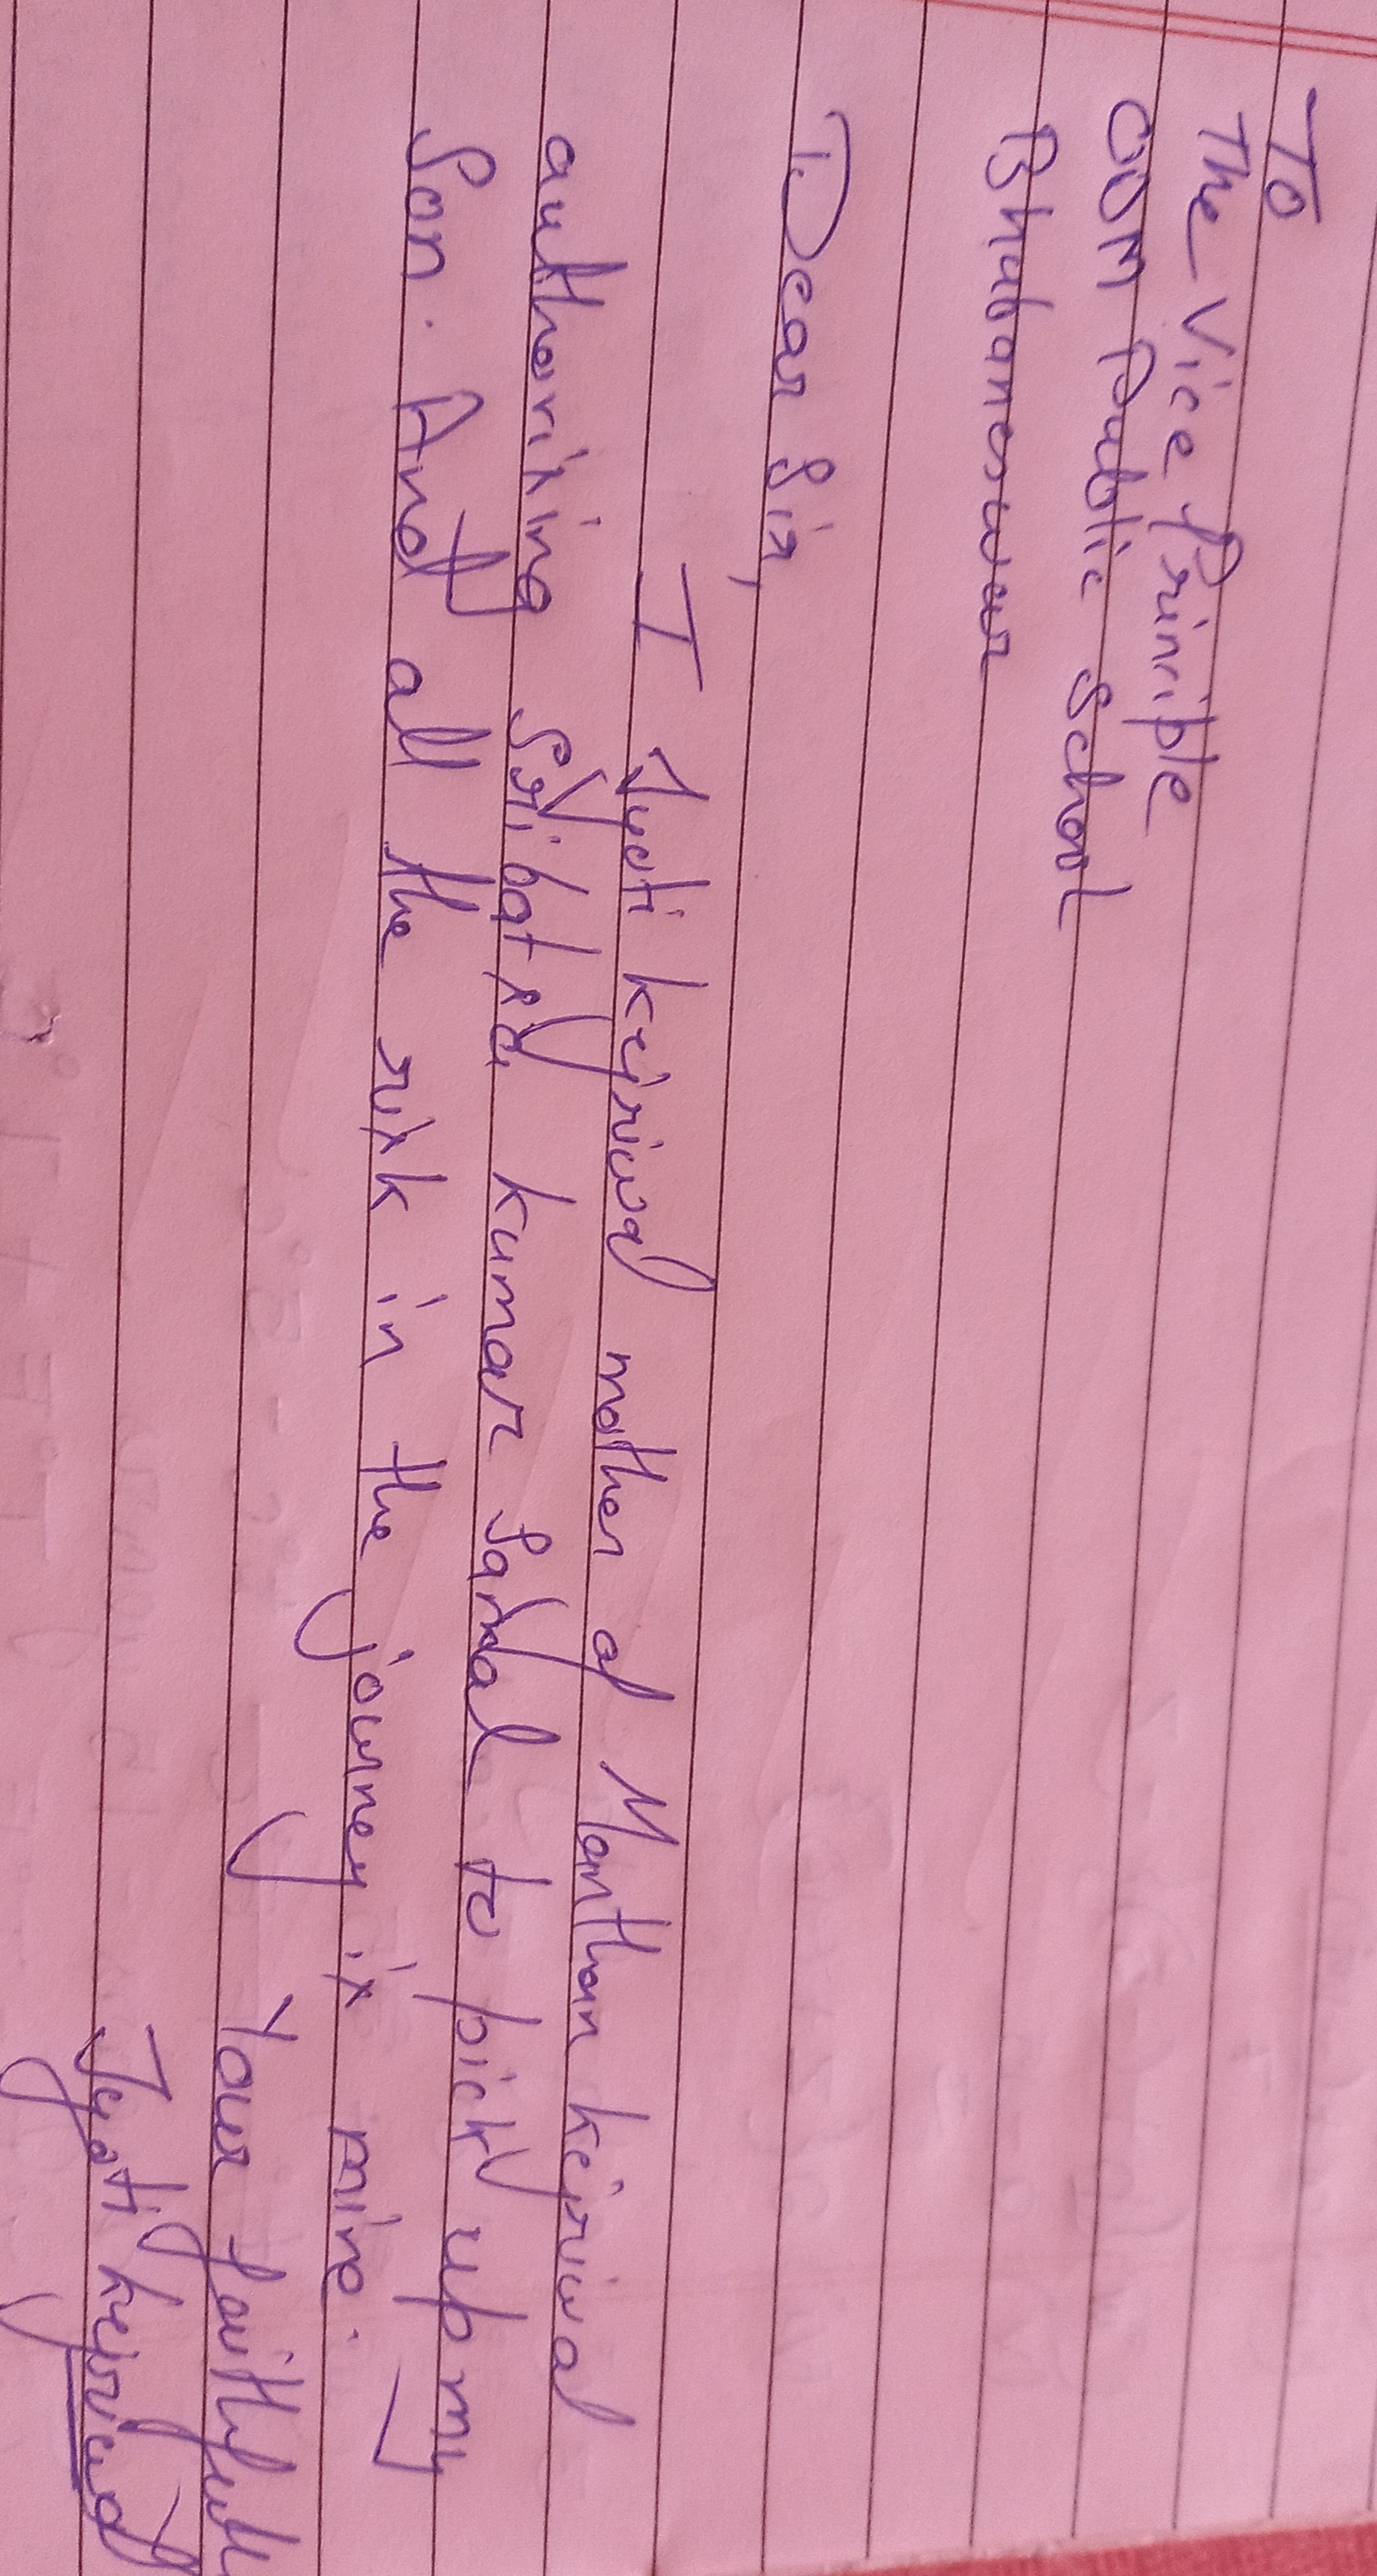 To
The Vice Principle
ODM Public School
Bhubaneswar
Dear Sir,
I Jyoti kejriwal mother of Manthan kejriwal
authorising kumar to pick up my
Son. And all the risk in the journey is mine.
Your faithfull
Jyoti kejriwal